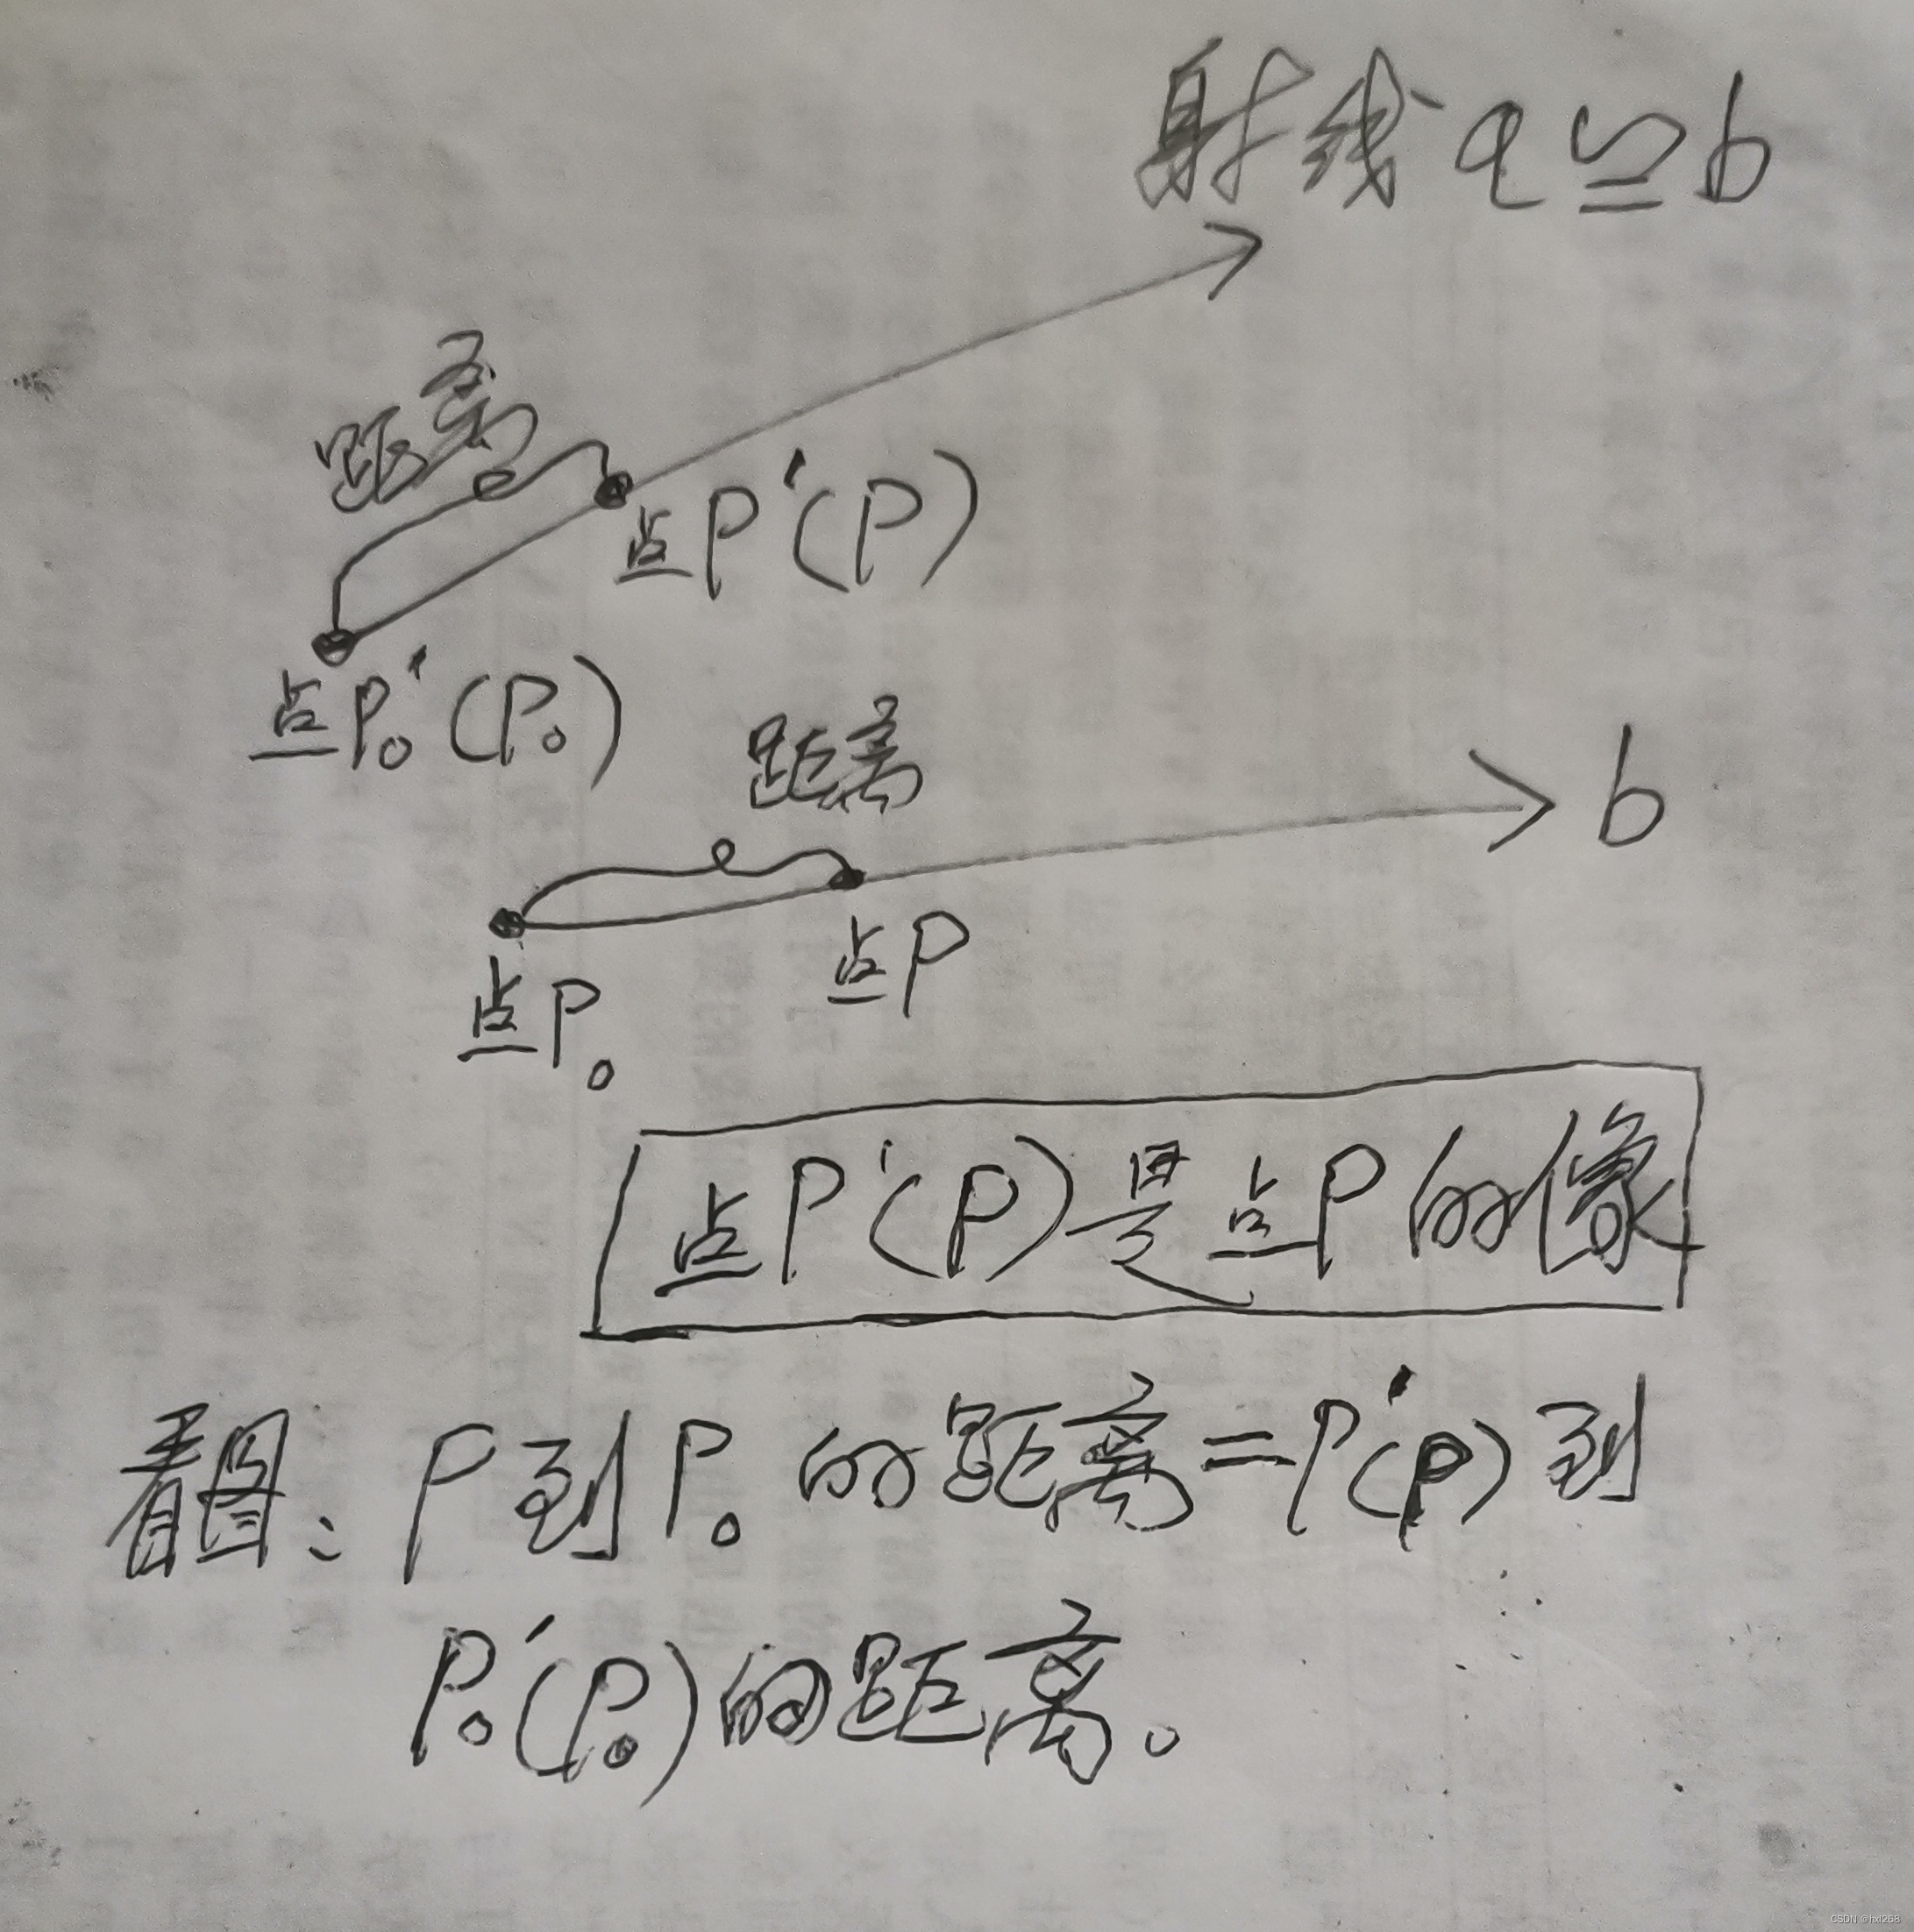 射线 a≌b
距离
点P'(P)
点P₀'(P₀)
距离
b
点P
点P₀
点P'(P)是点P的像
看图：P到P₀的距离=P'(P)到
P₀'(P₀)的距离。
CSDN @hxl268